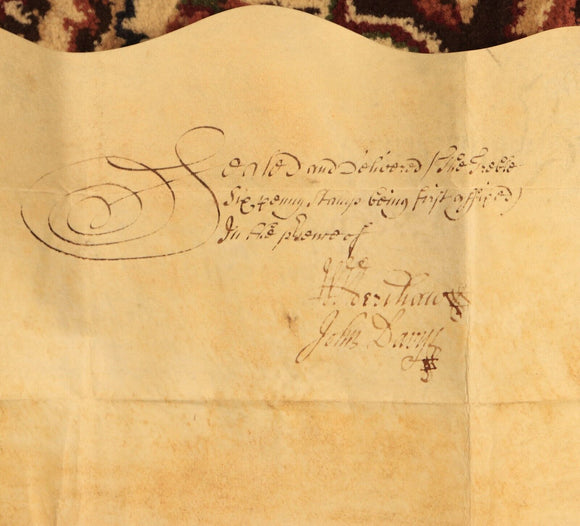 Sealed and Delivered (the treble
Sixpenny stamp being first affixed)
In the prsence of
John Davys